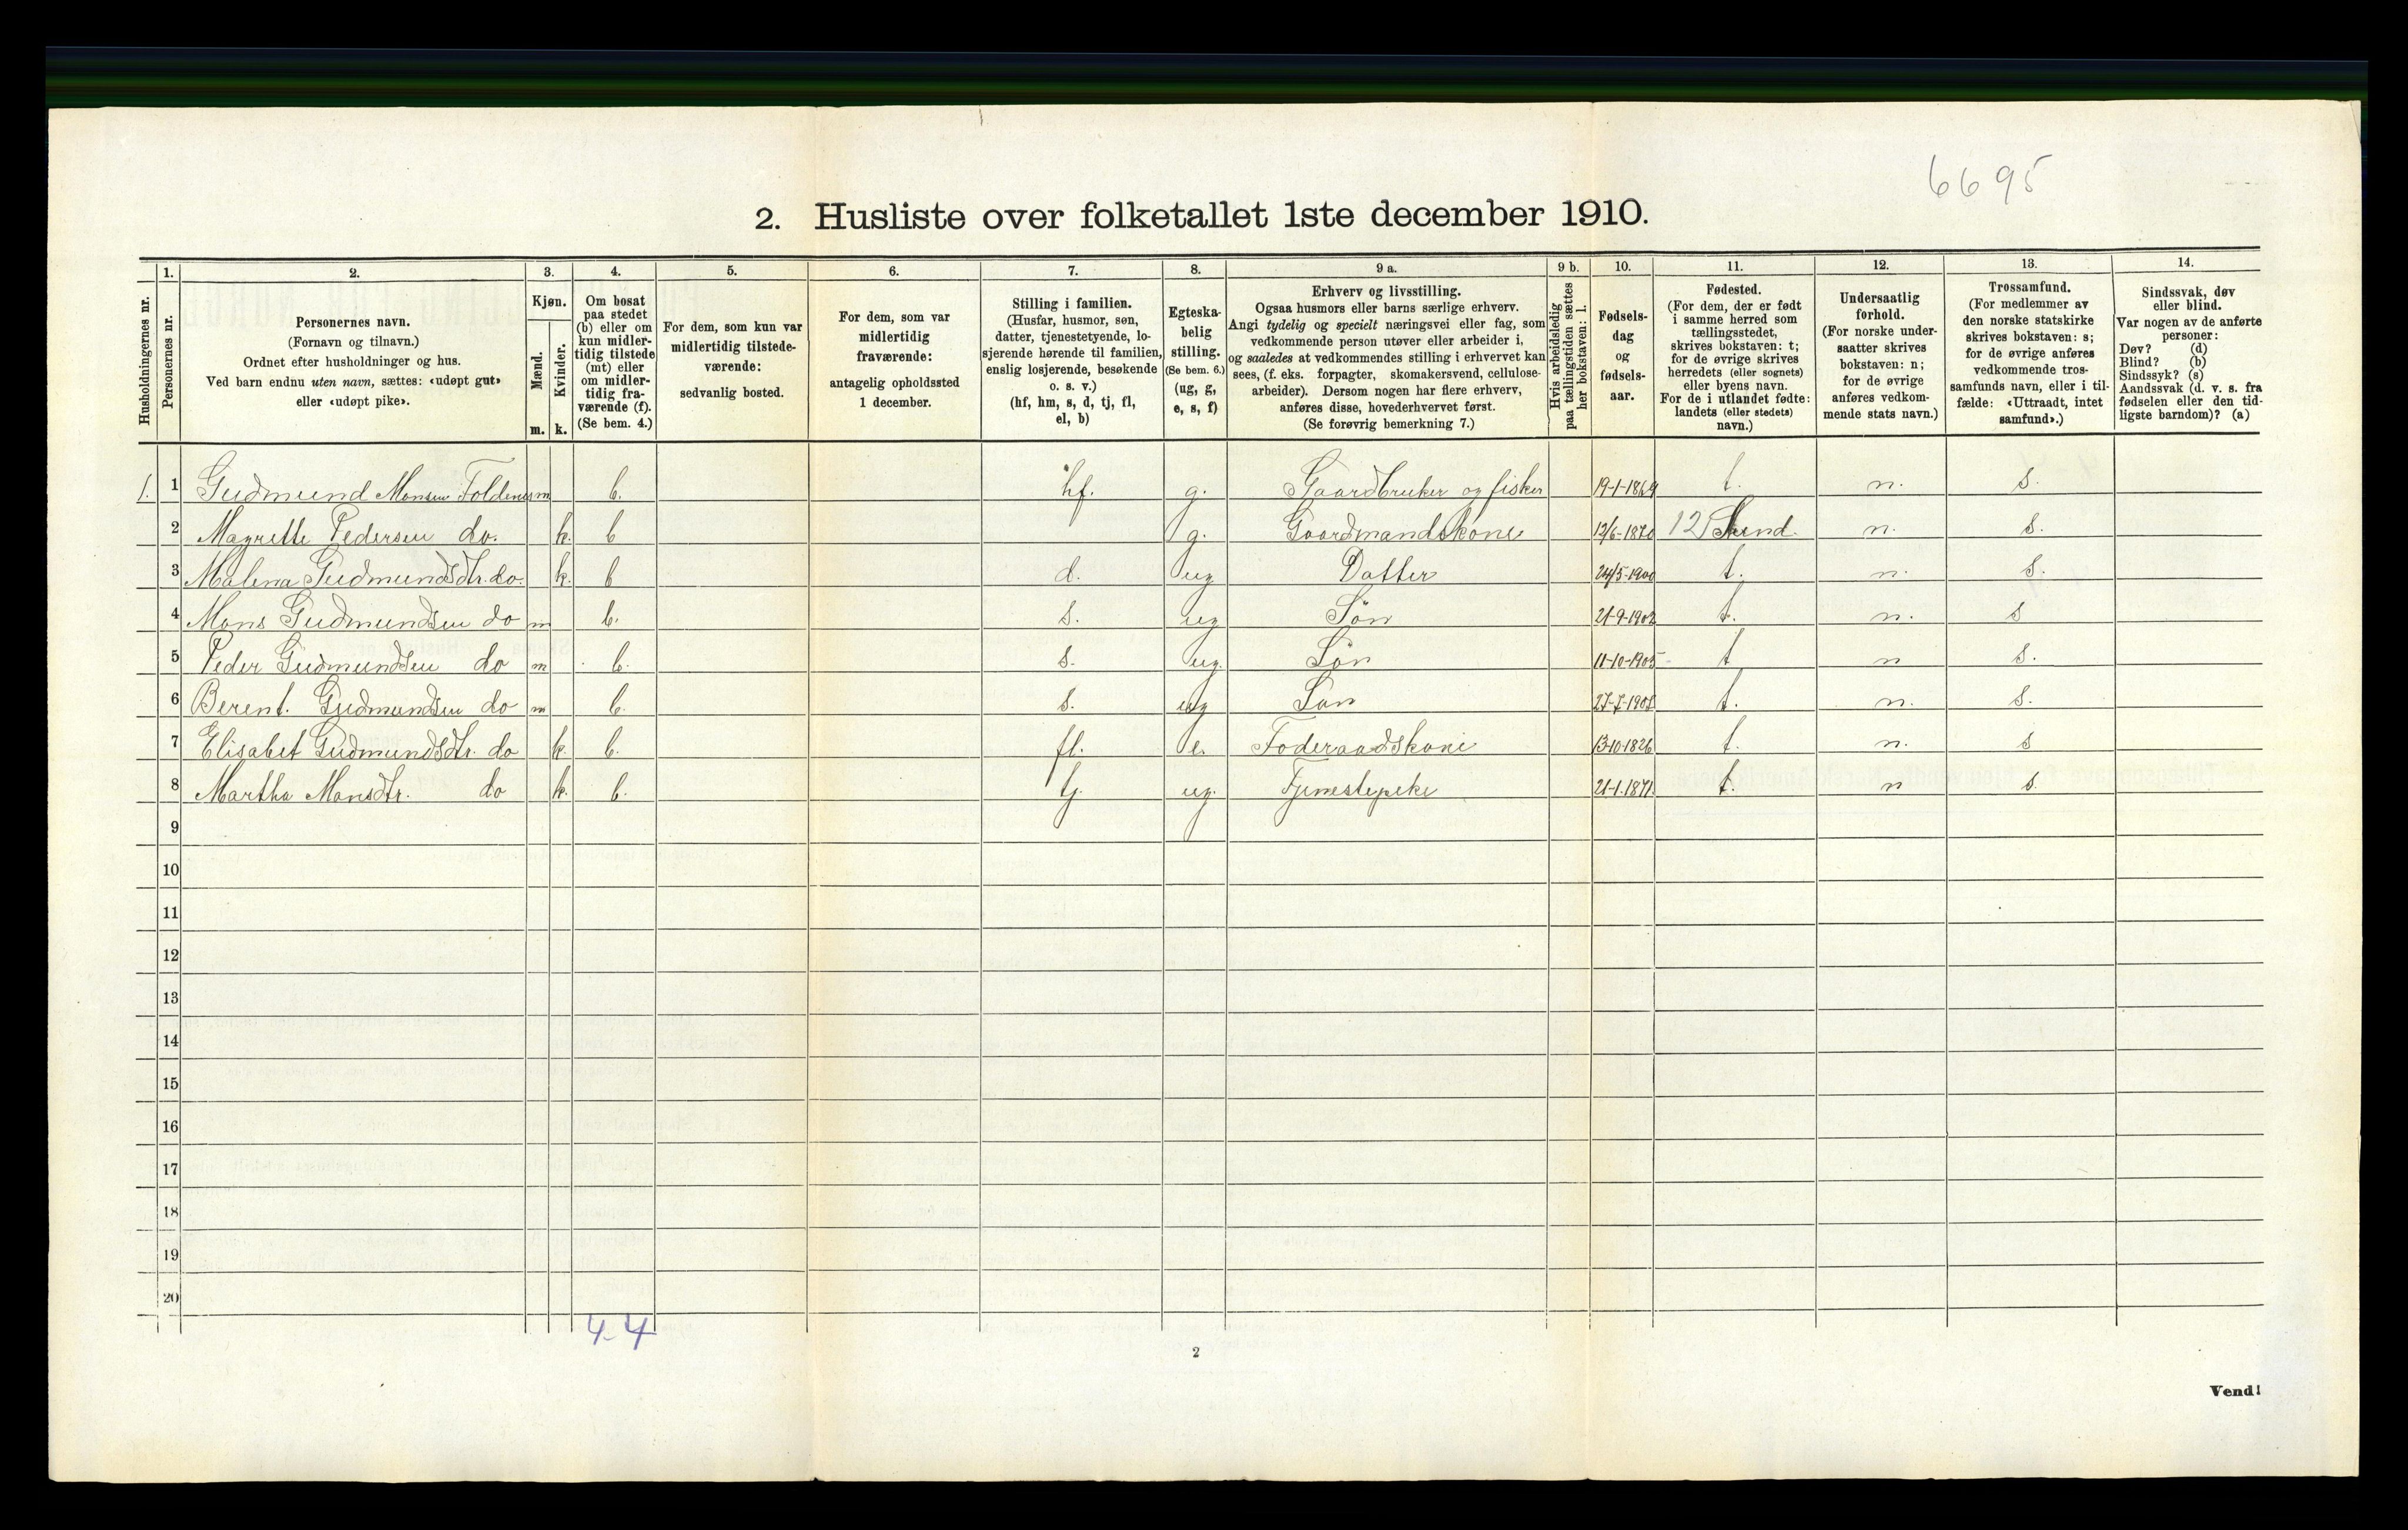 6695
2. Husliste over folketallet 1ste december 1910.
1. 2. 3. 4. 5. 6. 7. 8. 9 a. 9 b. 10. 11. 12. 13. 14.
Husholdningernes nr.
Personernes nr.
Personernes navn.
(Fornavn og tilnavn.)
Ordnet efter husholdninger og hus.
Ved barn endnu uten navn, sættes: «udøpt gut»
eller «udøpt pike».
Kjøn.
Mænd.
Kvinder.
m. k.
Om bosat
paa stedet
(b) eller om
kun midler-
tidig tilstede
(mt) eller
om midler-
tidig fra-
værende (f).
(Se bem. 4.)
For dem, som kun var
midlertidig tilstede-
værende:
sedvanlig bosted.
For dem, som var
midlertidig
fraværende:
antagelig opholdssted
1 december.
Stilling i familien.
(Husfar, husmor, søn,
datter, tjenestetyende, lo-
sjerende hørende til familien,
enslig losjerende, besøkende
o. s. v.)
(hf, hm, s, d, tj, fl,
el, b)
Egteska-
belig
stilling.
(Se bem. 6.)
(ug, g,
e, s, f)
Erhverv og livsstilling.
Ogsaa husmors eller barns særlige erhverv.
Angi tydelig og specielt næringsvei eller fag, som
vedkommende person utøver eller arbeider i,
og saaledes at vedkommendes stilling i erhvervet kan
sees, (f. eks. forpagter, skomakersvend, cellulose-
arbeider). Dersom nogen har flere erhverv,
anføres disse, hovederhvervet først.
(Se forøvrig bemerkning 7.)
Hvis arbeidsledig
paa tællingstiden sættes
her bokstaven: l.
Fødsels-
dag
og
fødsels-
aar.
Fødested.
(For dem, der er født
i samme herred som
tællingsstedet,
skrives bokstaven: t;
for de øvrige skrives
herredets (eller sognets)
eller byens navn.
For de i utlandet fødte:
landets (eller stedets)
navn.)
Undersaatlig
forhold.
(For norske under-
saatter skrives
bokstaven: n;
for de øvrige
anføres vedkom-
mende stats navn.)
Trossamfund.
(For medlemmer av
den norske statskirke
skrives bokstaven: s;
for de øvrige anføres
vedkommende tros-
samfunds navn, eller i til-
fælde: «Uttraadt, intet
samfund».)
Sindssvak, døv
eller blind.
Var nogen av de anførte
personer:
Døv? (d)
Blind? (b)
Sindssyk? (s)
Aandssvak (d. v. s. fra
fødselen eller den tid-
ligste barndom)? (a)
1. 1 Gudmund Monsen Foldenes m b. hf. g. Gaardbruker og fisker 19-1-1864 t. n. s.
2 Magrette Pedersen do. k. b g. Gaardmandskone 12/6-1870 12 n. s.
3 Malena Gudmundsdtr. do. k. b d. ug Datter 24/5-1900 t. n. s.
4 Mons Gudmundsen do m b. s. ug Sön 21-9-1902 t. n. s
5 Peder Gudmundsen do m b. s. ug. Sön 11-10-1905 t n s.
6 Berent. Gudmundsen do m b. s. ug Sön 27-7-1908 t. n. s.
7 Elisabet Gudmundsdtr. do k. b. fl. e. Foderaadskone 13-10-1826 t. n. s
8 Martha Monsdtr. do k. b. tj. ug. Tjenestepike 21-1.1871. t. n s.
9
10
11
12
13
14
15
16
17
18
19
20
4-4
2
Vend!